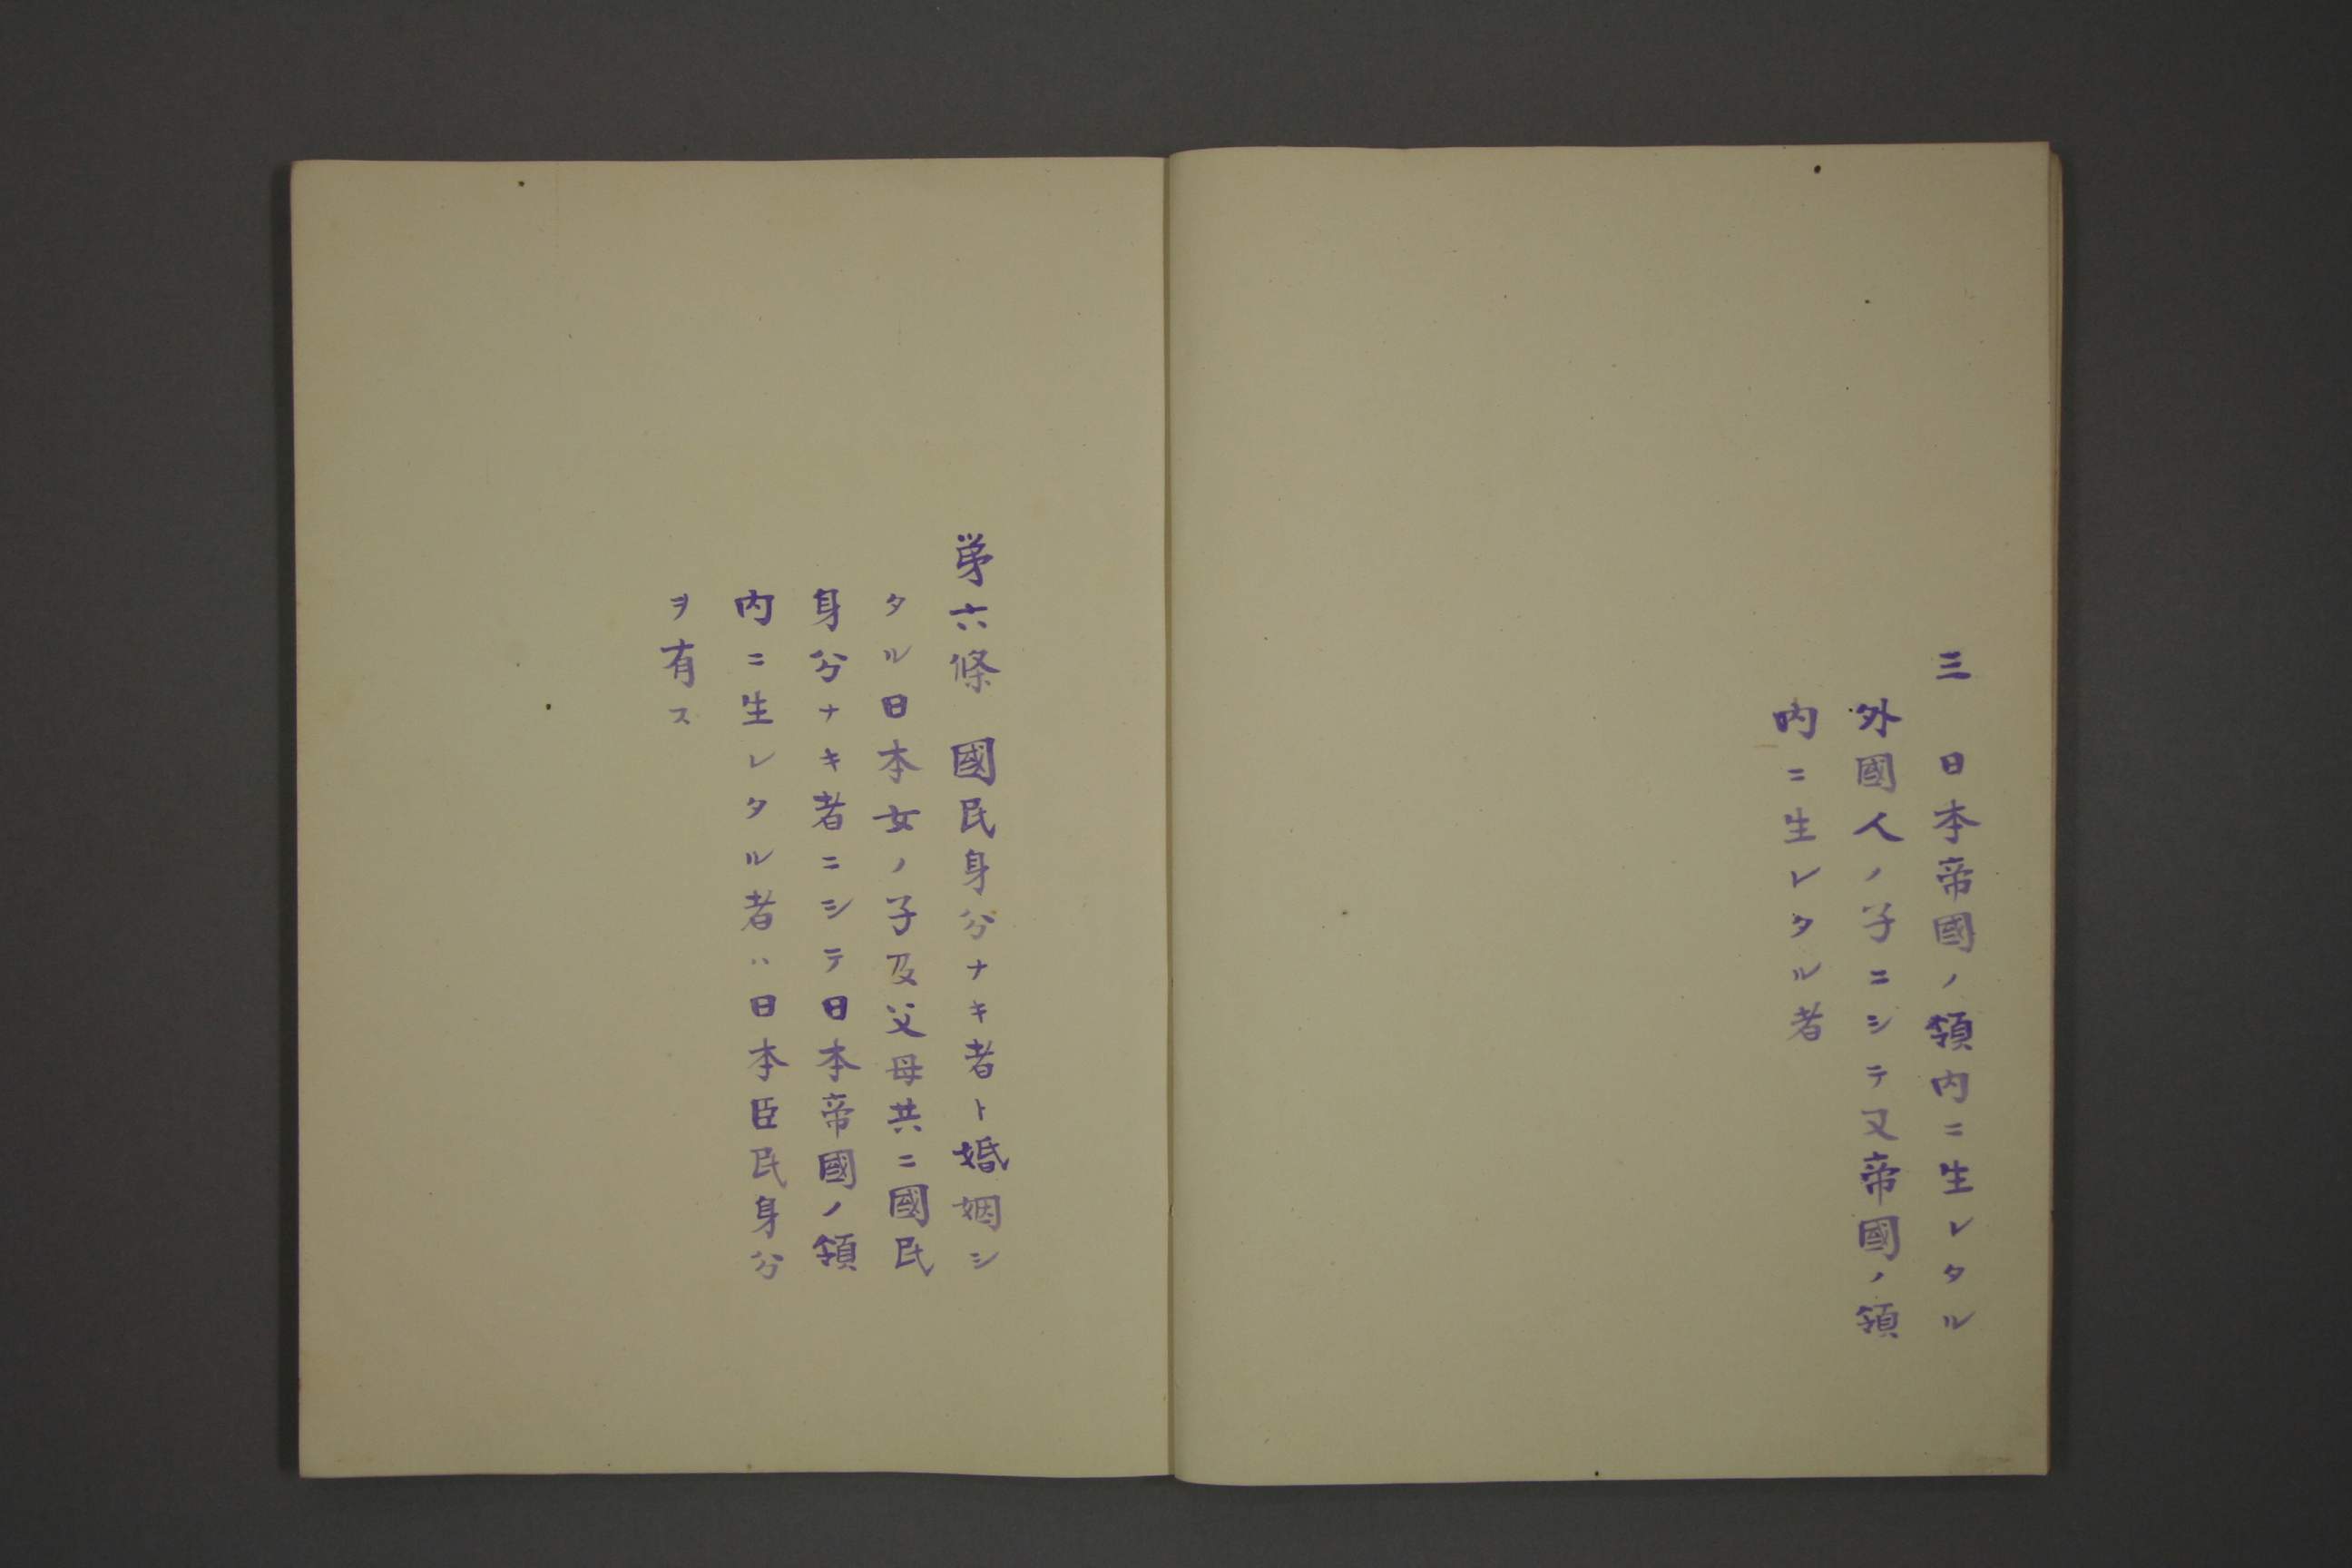 三　日本帝國ノ領内ニ生レタル
外國人ノ子ニシテ又帝國ノ領
内ニ生レタル者
第六條　國民身分ナキ者ト婚姻シ
タル日本女ノ子及父母共ニ國民
身分ナキ者ニシテ日本帝國ノ領
内ニ生レタル者ハ日本臣民身分
ヲ有ス